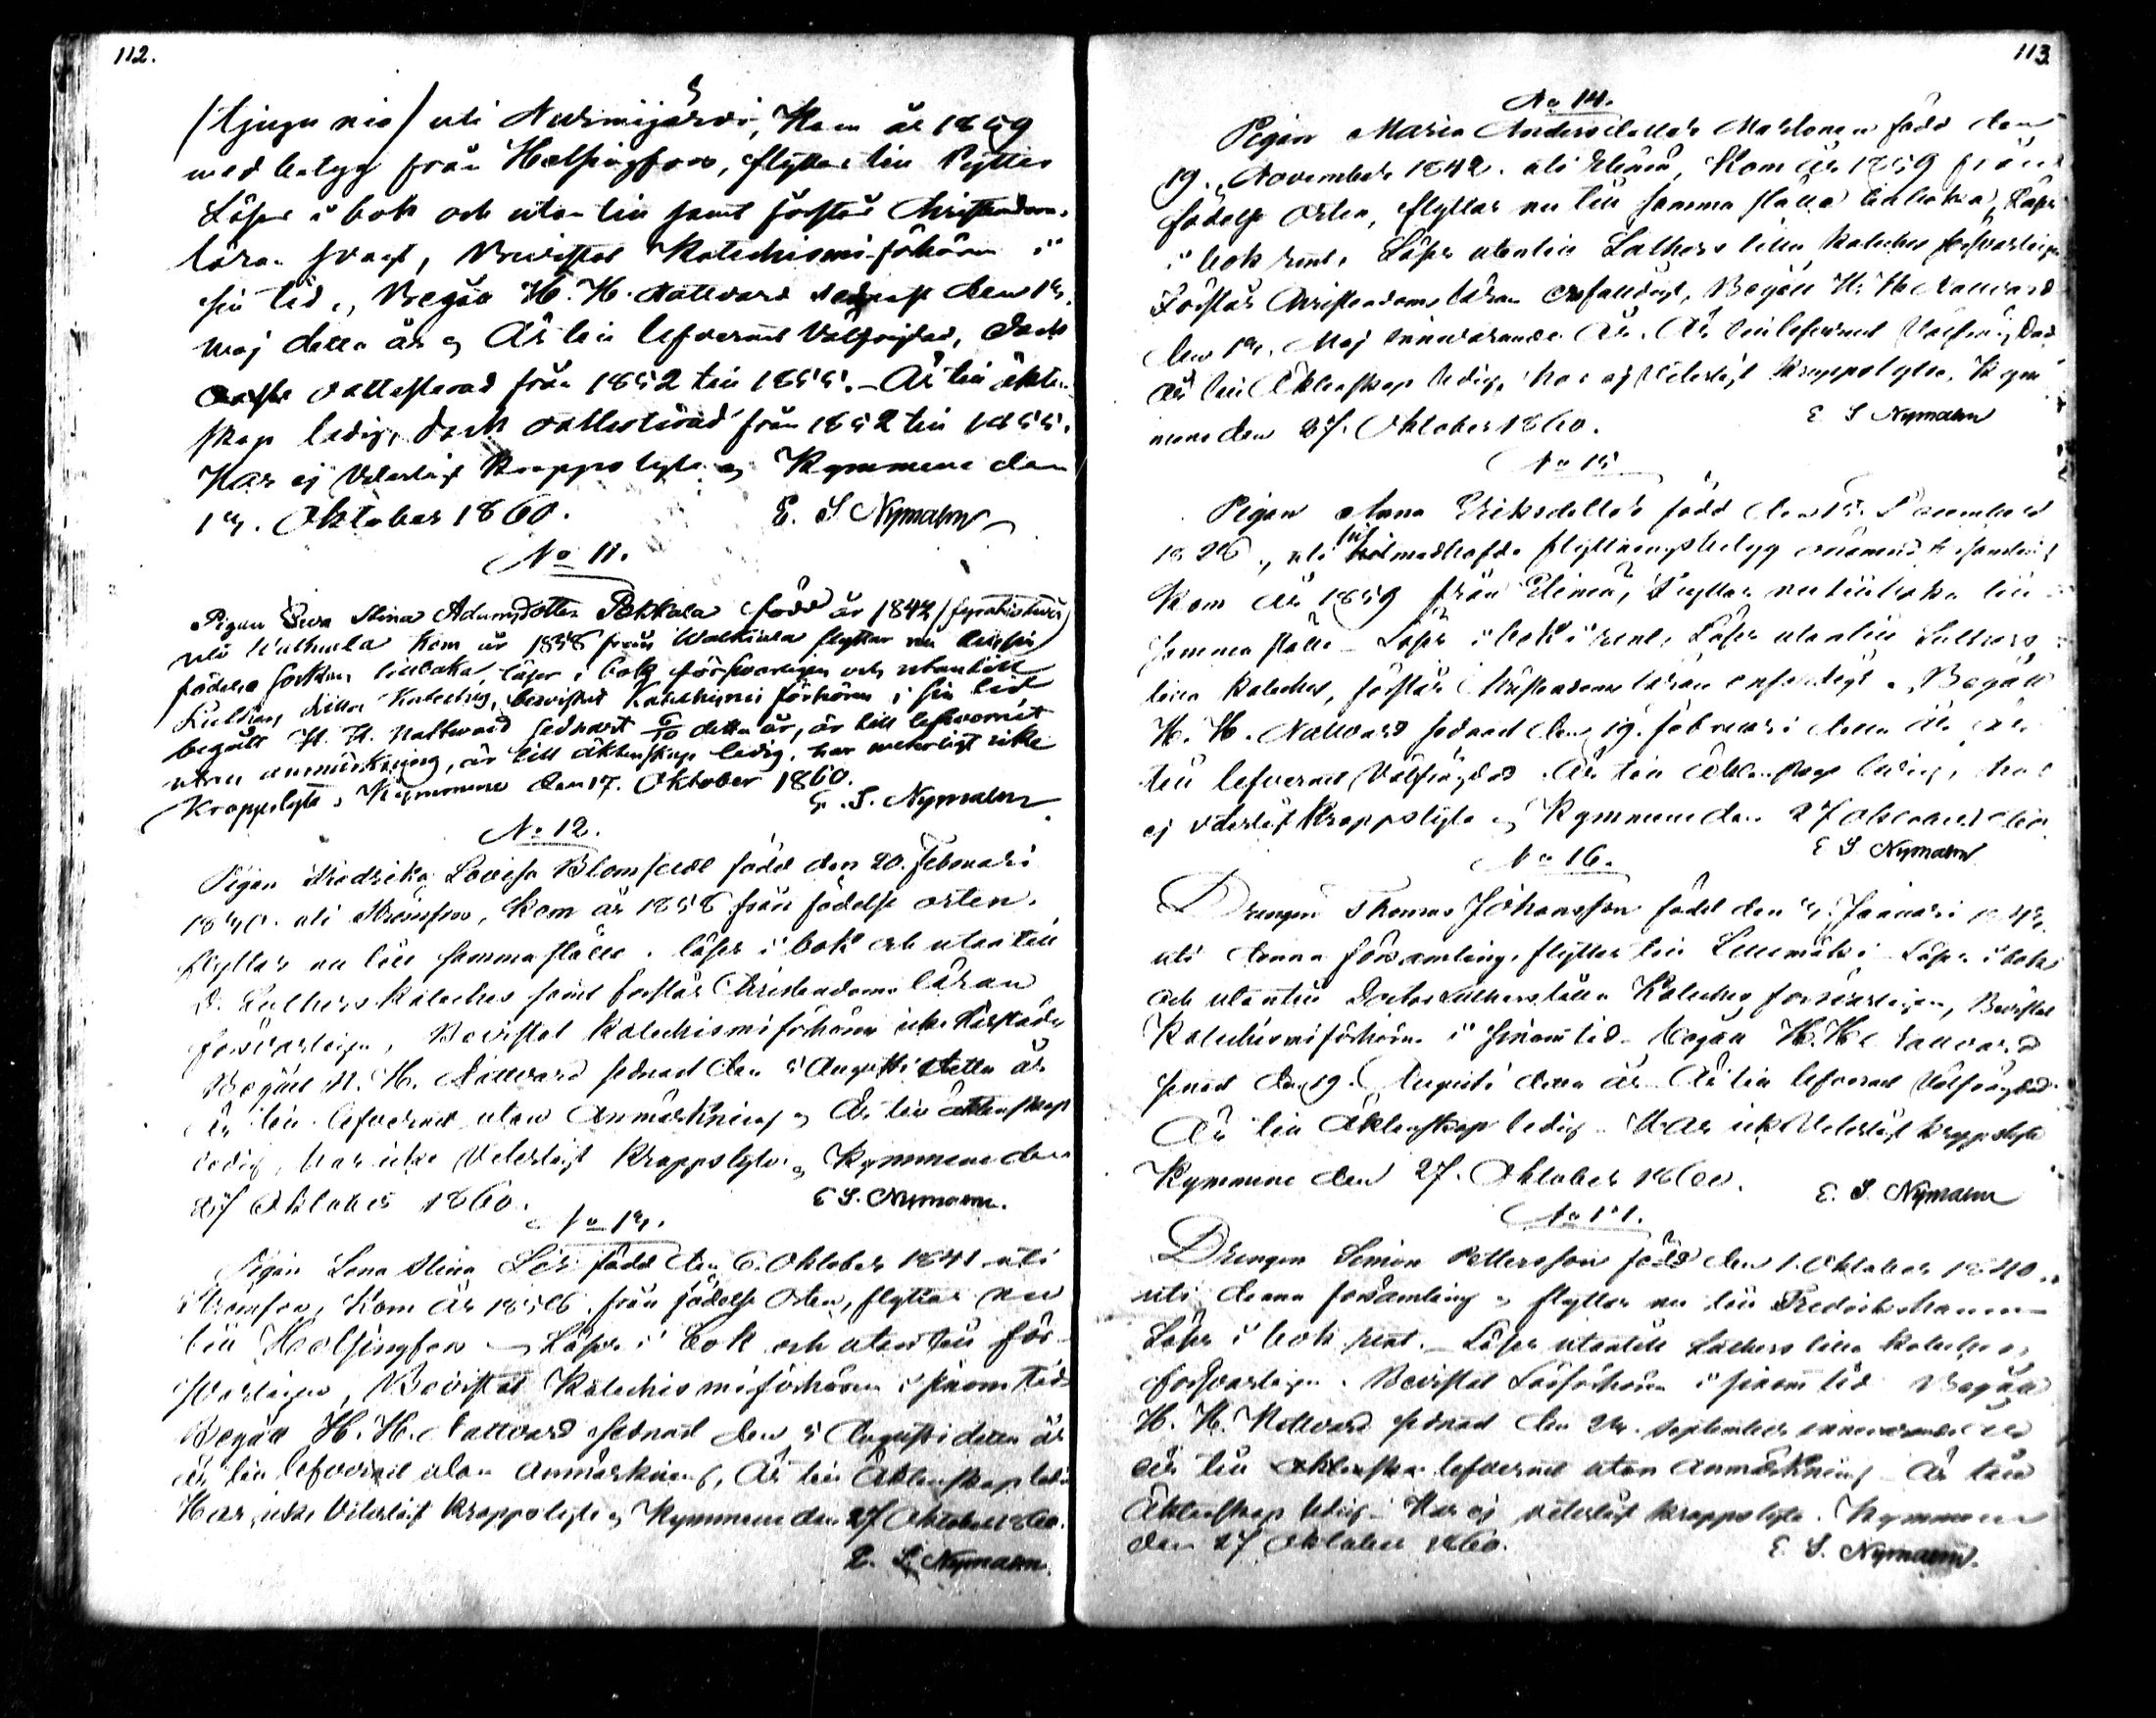 112.
(tjugu nio) uti Nurmijärvi, Kom år 1859
med betyg från Helsingfors, flyttar till Pyttis
Läser i bok och utan till samt förstår Christendoms
läran svagt, Bevistat Katechismi förhören i
sin tid, Begått H. H. Nattvard sednast den 13.
Maj detta år Är till lefvernet Välfrejdad, dock
oattesterad från 1852 till 1855. Är till äkten
skap ledig, dock oattesterad från 1852 till 1855.
Har ej Veterligt kroppslyte Kymmene den
13. Oktober 1860. E. S Nymalm
No 11.
Pigan Eva Stina Adamsdotter Pekkala född år 1842 (fyratiotvå)
uti Walkiala kom år 1858 från Walkiala flyttar nu till sin
födelse socken tillbaka, läser i bok försvarligen och utantill
Luthers lilla Kateches, bevistat Katechismi förhören i sin tid
begått H. H. Nattvard sednast 6/10 detta år, är till lefvernet
utan anmärkning, är till äktenskap ledig, har veterligt icke
kroppslyte, Kymmene den 17. Oktober 1860.
E. S. Nymalm
No 12.
Pigan Fredrika Lovisa Blomfeldt född den 20. Februari
1840. uti Strömfors, Kom år 1858 från födelse orten.
flyttar nu till samma ställe. läser i bok och utantill
D. Luthers Kateches samt förstår Christendoms läran
försvarligen, Bevistat Katechismi förhören icke härstädes
Begått H. H. Nattvard sednast den 5 Augusti detta år
Är till lefvernet utan Anmärkning Är till äktenskap
ledig, har icke Veterligt Kroppslyte Kymmene den
27 Oktober 1860. E S. Nymalm.
No 13.
Pigan Lena Stina född den 6. Oktober 1841 uti
Strömfors, Kom År 1856 från födelse Orten, flyttar nu
till Helsingfors Läser i bok och utantill för-
svarligen, Bevistat Katechismi förhören i sinom tid
Begått H. H. Nattvard sednast den 5 Augusti detta år
är till lefvernet utan Anmärkning, Är till Äktenskap ledig
Har icke Veterligt kroppslyte Kymmene den 27 Oktober 1860.
E. S. Nymalm.
113
No 14.
Pigan Maria Andersdotter född den
19. November 1842. uti Elimä, Kom år 1859 från
födelse Orten, flyttar nu till samma ställe tillbaka, Läser
i bok rent, Läser utantill Luthers lilla Kateches försvarligen
Förstår Christendoms läran enfaldigt, Begått H. H. Nattvard
den 13. Maj innevarande År. Är till lefvernet Välfrejdad
är till Äktenskap ledig, har ej Veterligt kroppslyte, Kym
mene den 27. Oktober 1860. E S Nymalm
No 15
Pigan Anna Eriksdotter född den 15. December
1826, uti flyttningsbetyg
Kom År 1859 från Elimä, flyttar nu tillbaka till
samma ställe Läser i bok rent, Läser utantill Luthers
lilla Kateches, förstår Christendoms läran enfaldigt. Begått
H. H. Nattvard sednast den 19. Februari detta år är
till lefvernet Välfrejdad Är till äktenskap ledig, har
ej veterligt Kroppslyte Kymmene den 27 Oktober 1860
E S Nymalm
No 16.
Drengen Thomas Johansson född den Januari
uti denna församling, flyttar till Läser i bok
och utantill Doctor Luthers lilla Kateches försvarligen, Bevistat
Katechismi förhören i sinom tid. Begått H. H. Nattvard
senast den 19. Augusti detta år Är till lefvernet Välfrejdad
Är till Äktenskap ledig. Har icke Veterligt kroppslyte
Kymmene den 27. Oktober 1860. E. S Nymalm
Drengen Simon Pettersson född den 1. Oktober 1840
uti denna församling flyttar nu till Fredrikshamn
Läser i bok rent. Läser utantill Luthers lilla Kateches
försvarligen. Bevistat Läsförhören i sinom tid Begått
H. H. Nattvard sednast den September innevarande år
är till lefvernet utan Anmärkning Är till
Äktenskap ledig. Har ej veterligt kroppslyte. Kymmene
den 27 Oktober 1860. E. S. Nymalm.